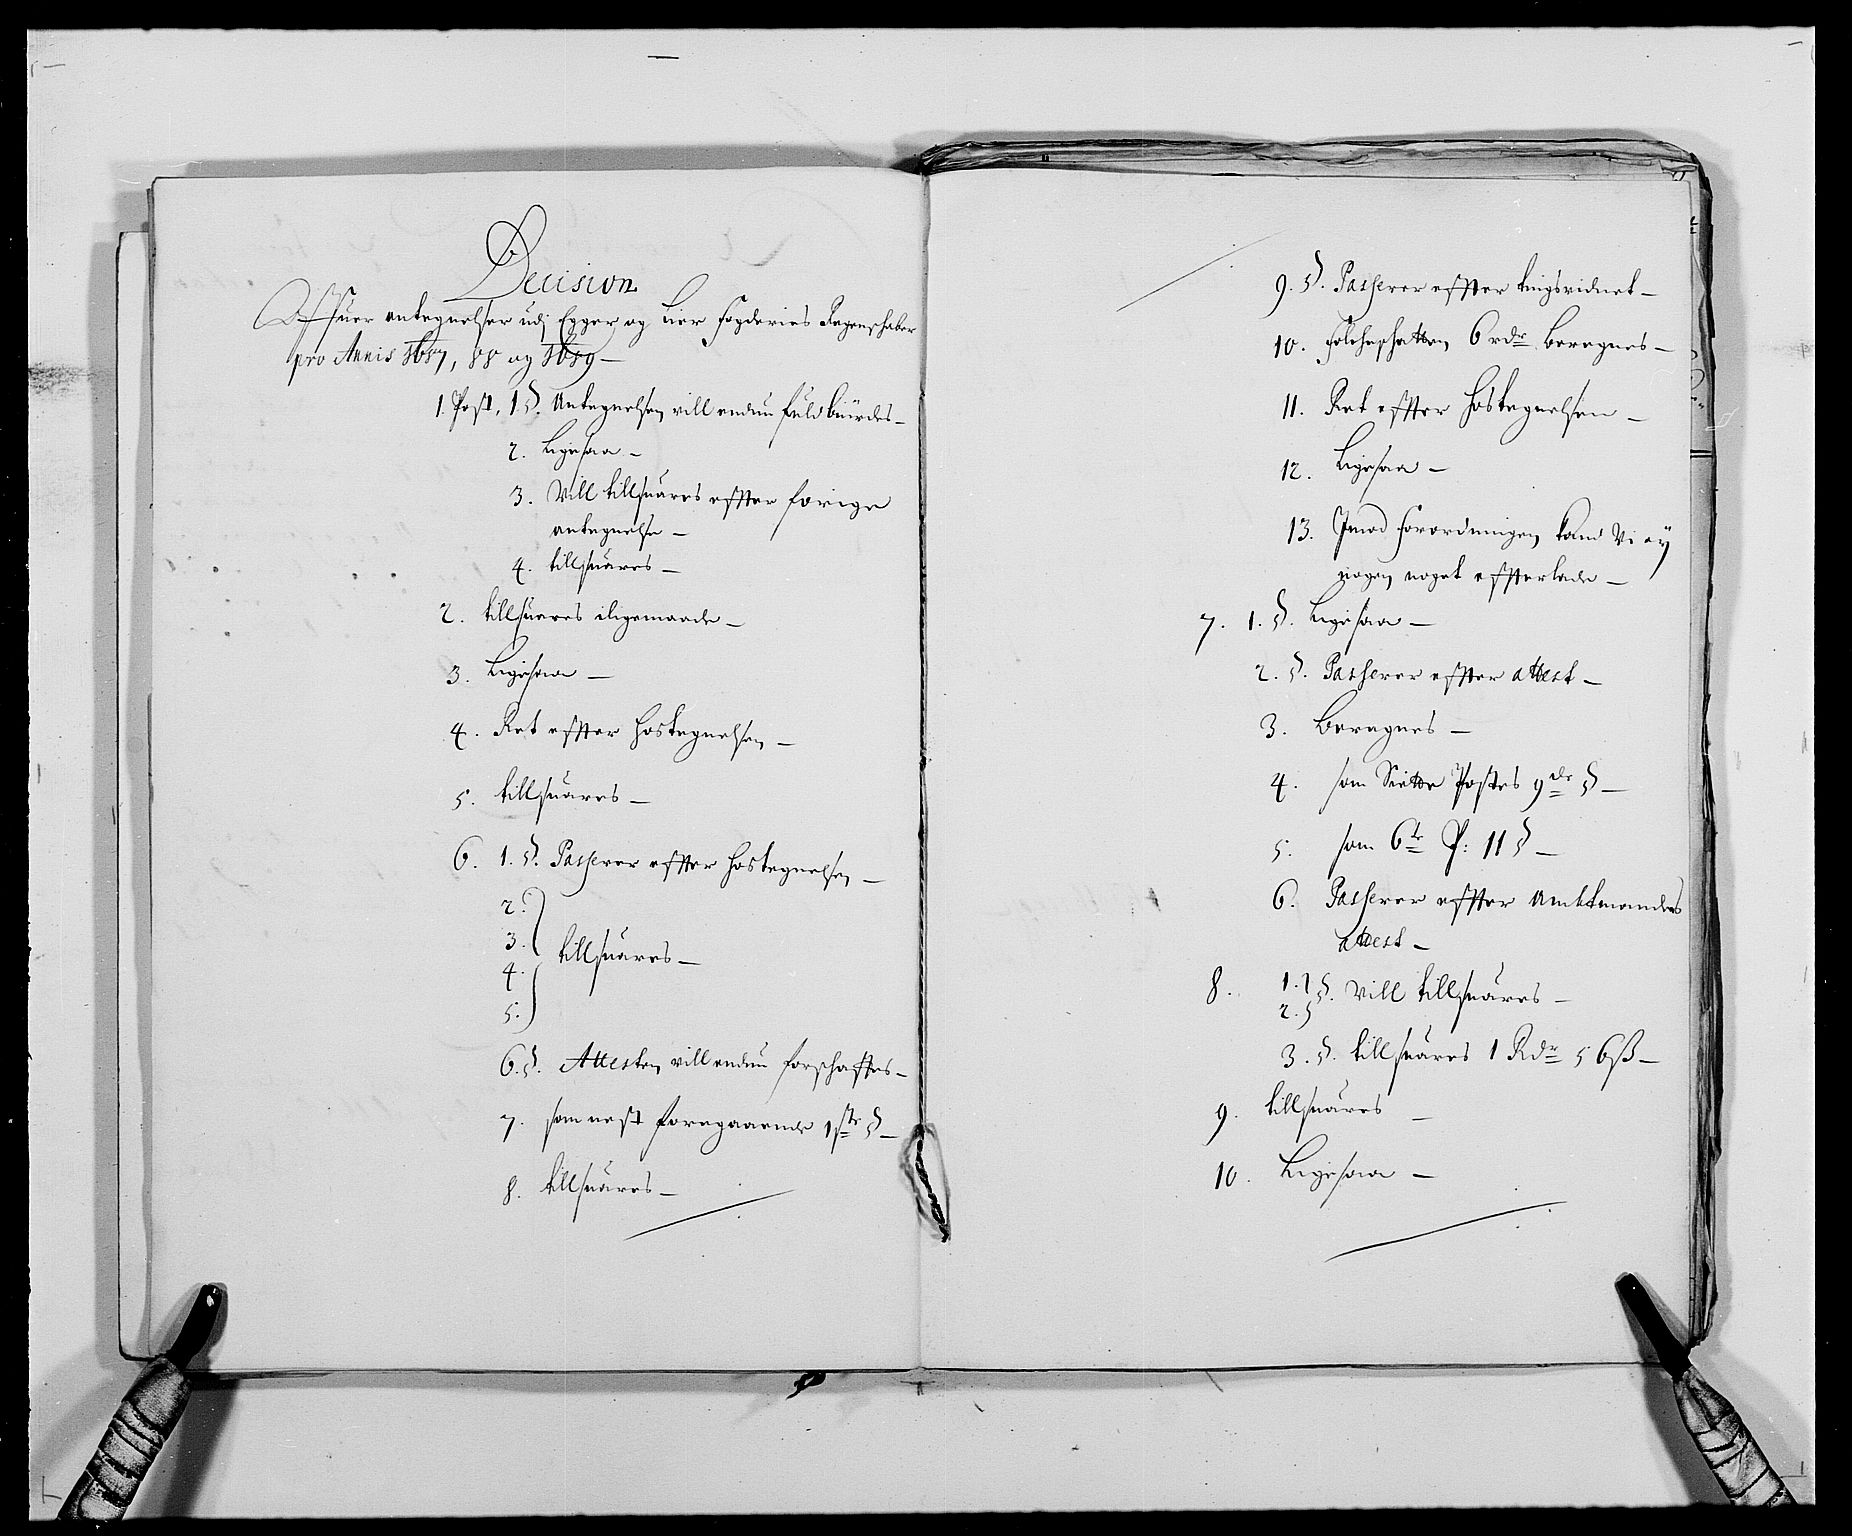 Decision
Offuer antegnelser udj Egger og Lier fogderies Regenschaber
pro Annis 1687, 88 og 1689 –
1. Post. 1. §. Antegnelsen vill endnu fuldbürdes –
2. Ligesaa –
3. Vill tillsuares effter forrige
antegnelse –
4. tillsuares –
2. tillsuares iligemaade –
3. Ligesaa –
4. Ret effter hostegnelsen –
5. tillsuares –
6. 1. §. Passerer effter hostegnelsen –
2.
3.
tillsuares –
4.
5.
6. §. Attesten vill endnu forschaffes –
7. som nest foregaaende 1ste § –
8. tillsuares –
9. §. Passerer effter tingsvidnet –
10. folcheschatten 6 rdr beregnes –
11. Ret effter hostegnelsen –
12. Ligesaa –
13. Jmod forordningen kand Vi ey
nogen noget effterlade –
7. 1. §. Ligesaa –
2. §. Passerer effter attest –
3. Beregnes –
4. som Siette Postes 9de § –
5. som 6te P: 11 § –
6. Passerer effter Ambtmandens
attest –
8. 1. §. Vill tillsuares –
2.
3. §. tillsuares 1 Rdr 56 ß –
9. tillsuares –
10. Ligesaa –